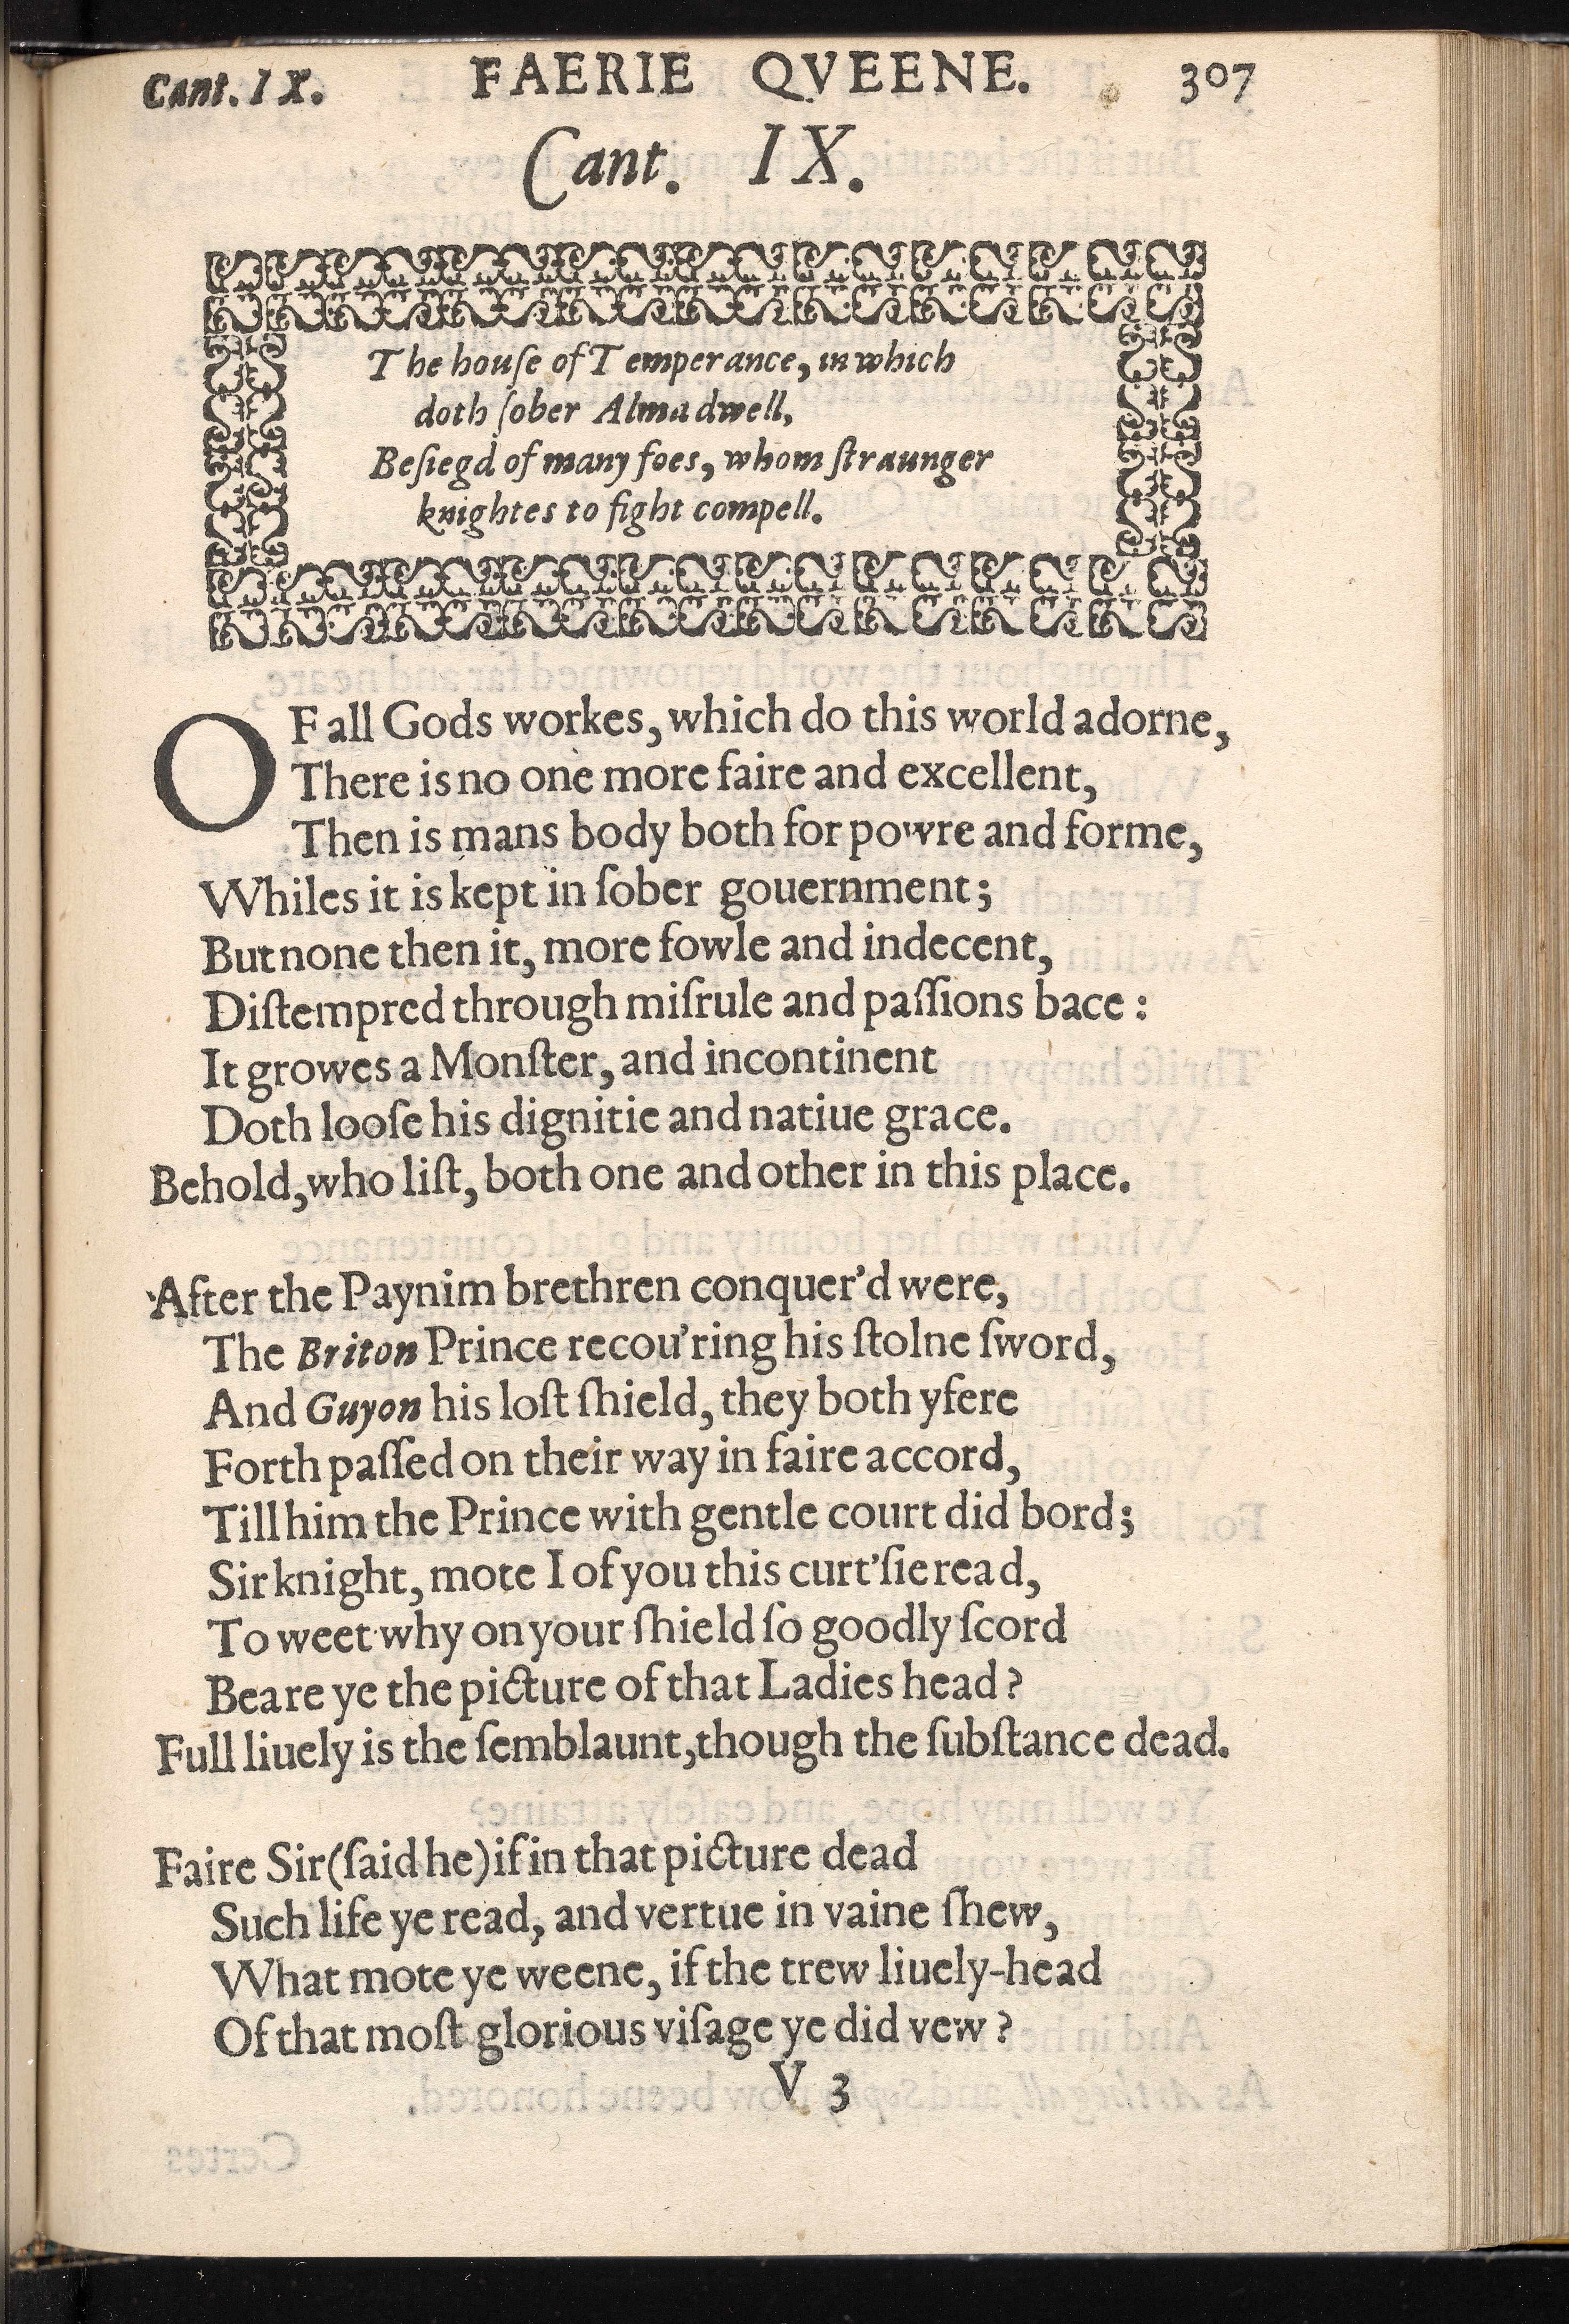 Cant. IX. FAERIE QVEENE. 307
Cant. IX.
The houſe of Temperance, in which
doth ſober Alma dwell,
Beſiegd of many foes, whom ſtraunger
knightes to fight compell.
OF all Gods workes, which do this world adorne,
There is no one more faire and excellent,
Then is mans body both for powre and forme,
Whiles it is kept in ſober gouernment;
But none then it, more fowle and indecent,
Diſtempred through miſrule and paſſions bace:
It growes a Monſter, and incontinent
Doth looſe his dignitie and natiue grace.
Behold, who liſt, both one and other in this place.
After the Paynim brethren conquer'd were,
The Briton Prince recou'ring his ſtolne ſword,
And Guyon his loſt ſhield, they both yfere
Forth paſſed on their way in faire accord,
Till him the Prince with gentle court did bord;
Sir knight, mote I of you this curt'ſie read,
To weet why on your ſhield ſo goodly ſcord
Beare ye the picture of that Ladies head?
Full liuely is the ſemblaunt, though the ſubſtance dead.
Faire Sir (ſaid he) if in that picture dead
Such life ye read, and vertue in vaine ſhew,
What mote ye weene, if the trew liuely-head
Of that moſt glorious viſage ye did vew?
V 3